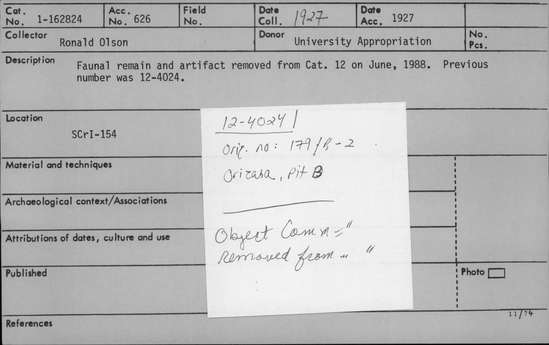 Cat. No. 1-162824 Acc. No. 626 Field No. Date Coll. 1927 Date Acc. 1927
Collector Ronald Olson Donor University Appropriation No. Pcs.
Description Faunal remain and artifact removed from Cat. 12 on June, 1988. Previous
number was 12-4024.
Location
SCrI-154
12-4024
Orig. no: 179/B-2
Orizaba, Pit B
Object Comm="
removed from " "
Material and techniques
Archaeological context/Associations
Attributions of dates, culture and use
Published Photo
11/74
References